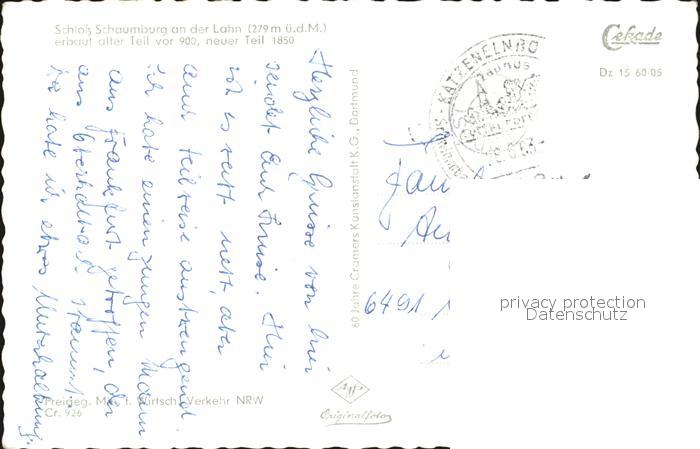 Schloß Schaumburg an der Lahn (279 m ü.d.M.)
erbaut alter Teil vor 900, neuer Teil 1850
Cekade
Dz 15 60 05
KATZENELNBO
Taunus
Herzliche Grüsse von hier
sendet Euch Luise. Hier
ist es sehr nett, aber
auch teilweise anstrengend.
ich habe einen jungen Mann
aus Frankfurt getroffen, der
aus stammt
da habe ich etwas Unterhaltung.
60 Jahre Cramers Kunstanstalt K.G., Dortmund
Fam
6491
privacy protection
Datenschutz
Freigeg. Min. f. Wirtsch. Verkehr NRW
Cr. 926
Agfa
Originalfoto